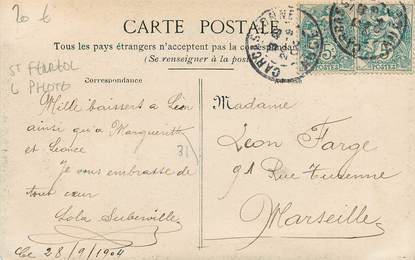 20 €
CARTE POSTALE
Tous les pays étrangers n'acceptent pas la correspondance
(Se renseigner à la poste)
ST FERREOL
6 PHOTO
Correspondance
Mille baisers à Léon
ainsi qu'à Marguerite
et Léonce
Je vous embrasse de
tout cœur
Lola Suberville
Ce 28/9/1904
31
CARCASSONNE
Madame
Léon Farge
91 Rue Turenne
Marseille